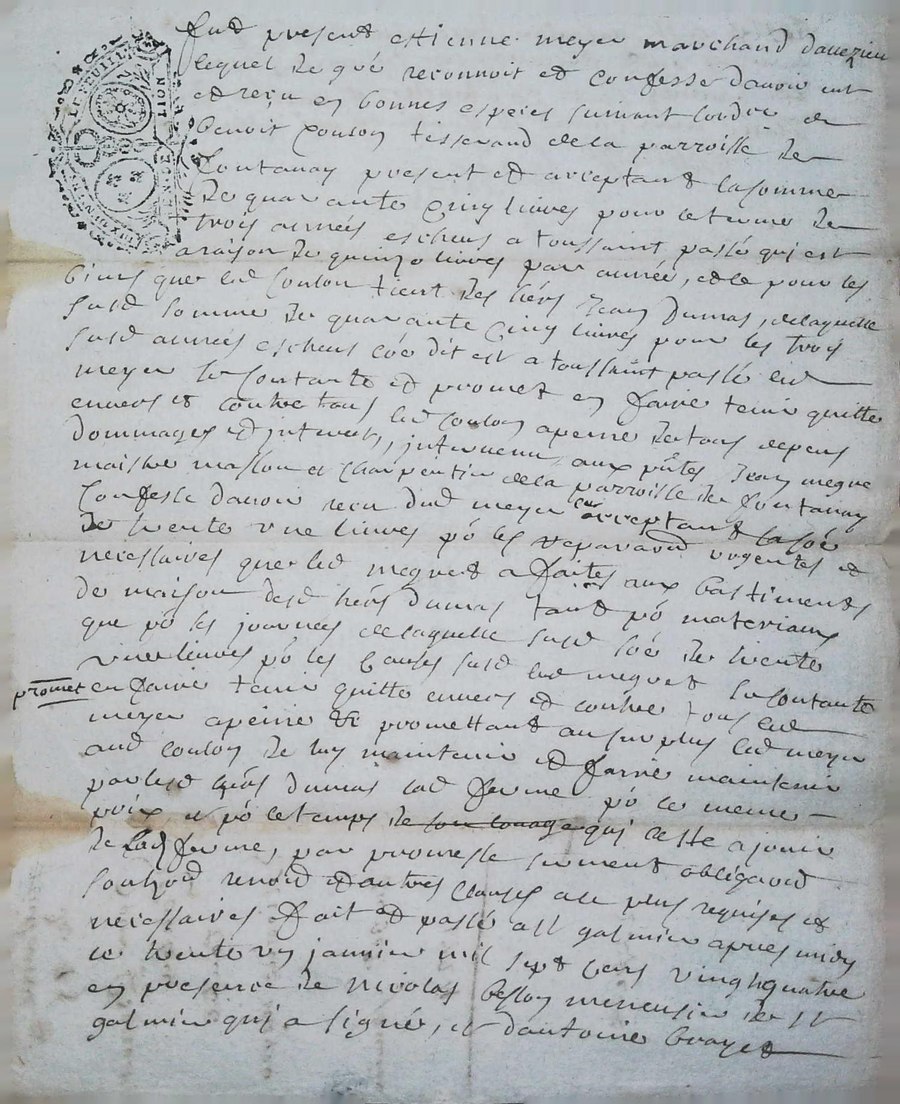 LA FEUILLE
LION
fut present estienne meyer marchand davezieu
lequel de gré reconnoit et confesse davoir eut
et reçu en bonnes especes suivant lordre de
benoit coulon tisserand de la parroisse de
fontanay present et acceptant la somme
de quarante cinq livres pour le terme de
trois années escheus a toussaint passé qui est
araison de quinze livres par année, et ce pour les
biens que led coulon tient des hers Jean Dumas, de laquelle
susd somme de quarante cinq livres pour les trois
susd années escheus coe dit est a toussaint passé led
meyer se contante et promet en faire tenir quitte
envers et contre tous led coulon apeine de tous depens
dommages et interets, intervenu aux pntes Jean meque
maistre masson et charpentier de la parroisse de fontanay
confesse davoir recu dud meyer acceptant la soe
de trente une livres po les reparaod urgentes et
necessaires que led mequet a faites aux bastiments
de maison desd hers dumas tant po materiaux
que po les journées de laquelle susd soe de trente
une livres po les causes susd led mequet se contante
promet en faire tenir quitte envers et contre tous led
meyer apeine &c promettant au surplus led meyer
aud coulon de luy maintenir et faire maintenir
par lesd hers dumas lad ferme po le meme
prix, et po le temps de son louage qui reste a jouir
de lad ferme, par promesse serment obligaod
renod et autres clauses a ce plus requises et
necessaires fait et passé a st galmier apres midy
ce trente un janvier mil sept cens vingt quatre
en presence de nicolas besson menusier de st
galmier qui a signé, et dantoine brayet